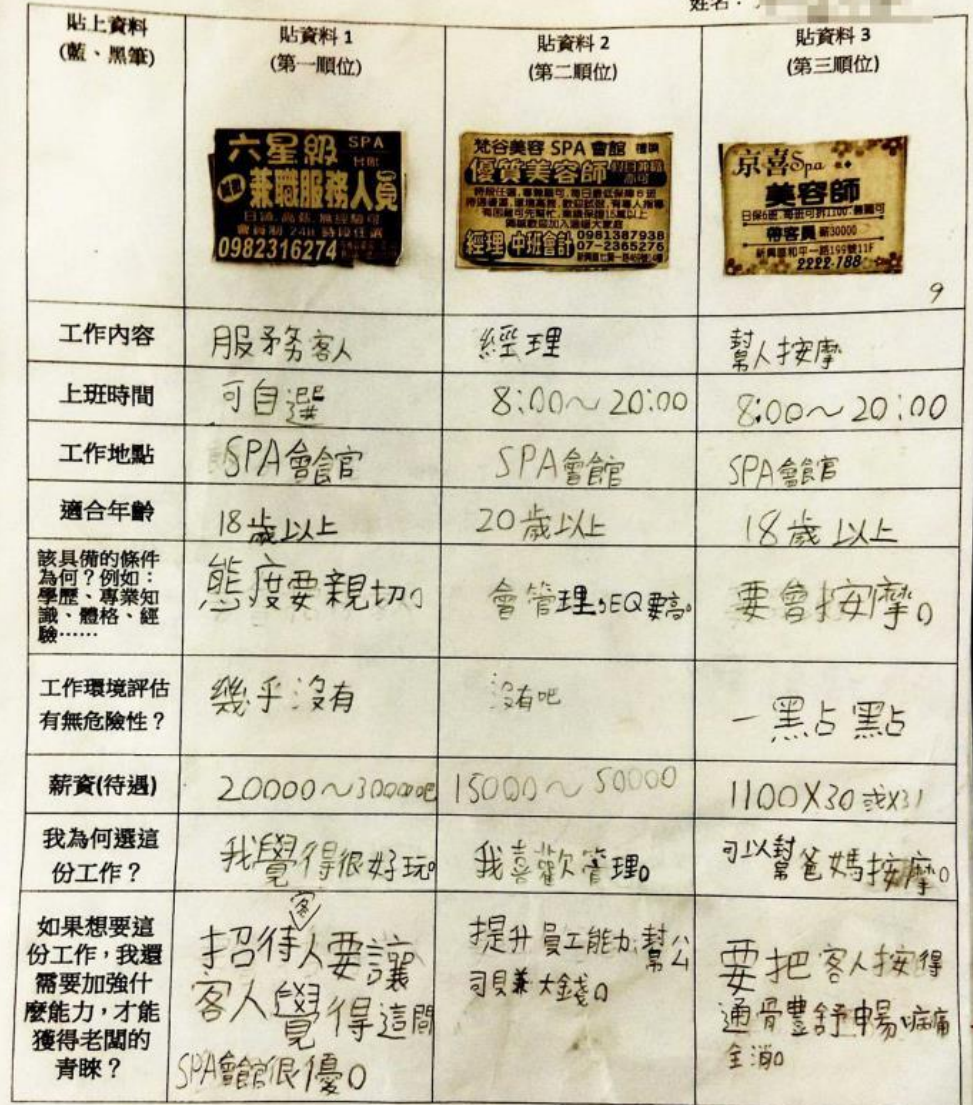 姓名：
貼上資料
(藍、黑筆)
貼資料 1
(第一順位)
貼資料 2
(第二順位)
貼資料 3
(第三順位)
六星級 SPA
兼職服務人員
日領
會員制 24H 時段任選
0982316274
梵谷美容 SPA 會館
優質美容師
經理 中班會計
0981387938
07-2365276
京喜Spa
美容師
日保6班
帶客員 薪30000
新興區和平一路199號11F
2222-788
9
工作內容
服務客人
經理
幫人按摩
上班時間
可自選
8:00～20:00
8:00～20:00
工作地點
SPA會館
SPA會館
SPA會館
適合年齡
18歲以上
20歲以上
18歲以上
該具備的條件
為何？例如：
學歷、專業知
識、體格、經
驗……
態度要親切。
會管理，EQ要高。
要會按摩。
工作環境評估
有無危險性？
幾乎沒有
沒有吧
一點點
薪資(待遇)
20000～30000吧
15000～50000
1100X30或X31
我為何選這
份工作？
我覺得很好玩。
我喜歡管理。
可以幫爸媽按摩。
如果想要這
份工作，我還
需要加強什
麼能力，才能
獲得老闆的
青睞？
招待客人要讓
客人覺得這間
SPA會館很優。
提升員工能力，幫公
司賺大錢。
要把客人按得
通骨豐舒暢，病痛
全消。